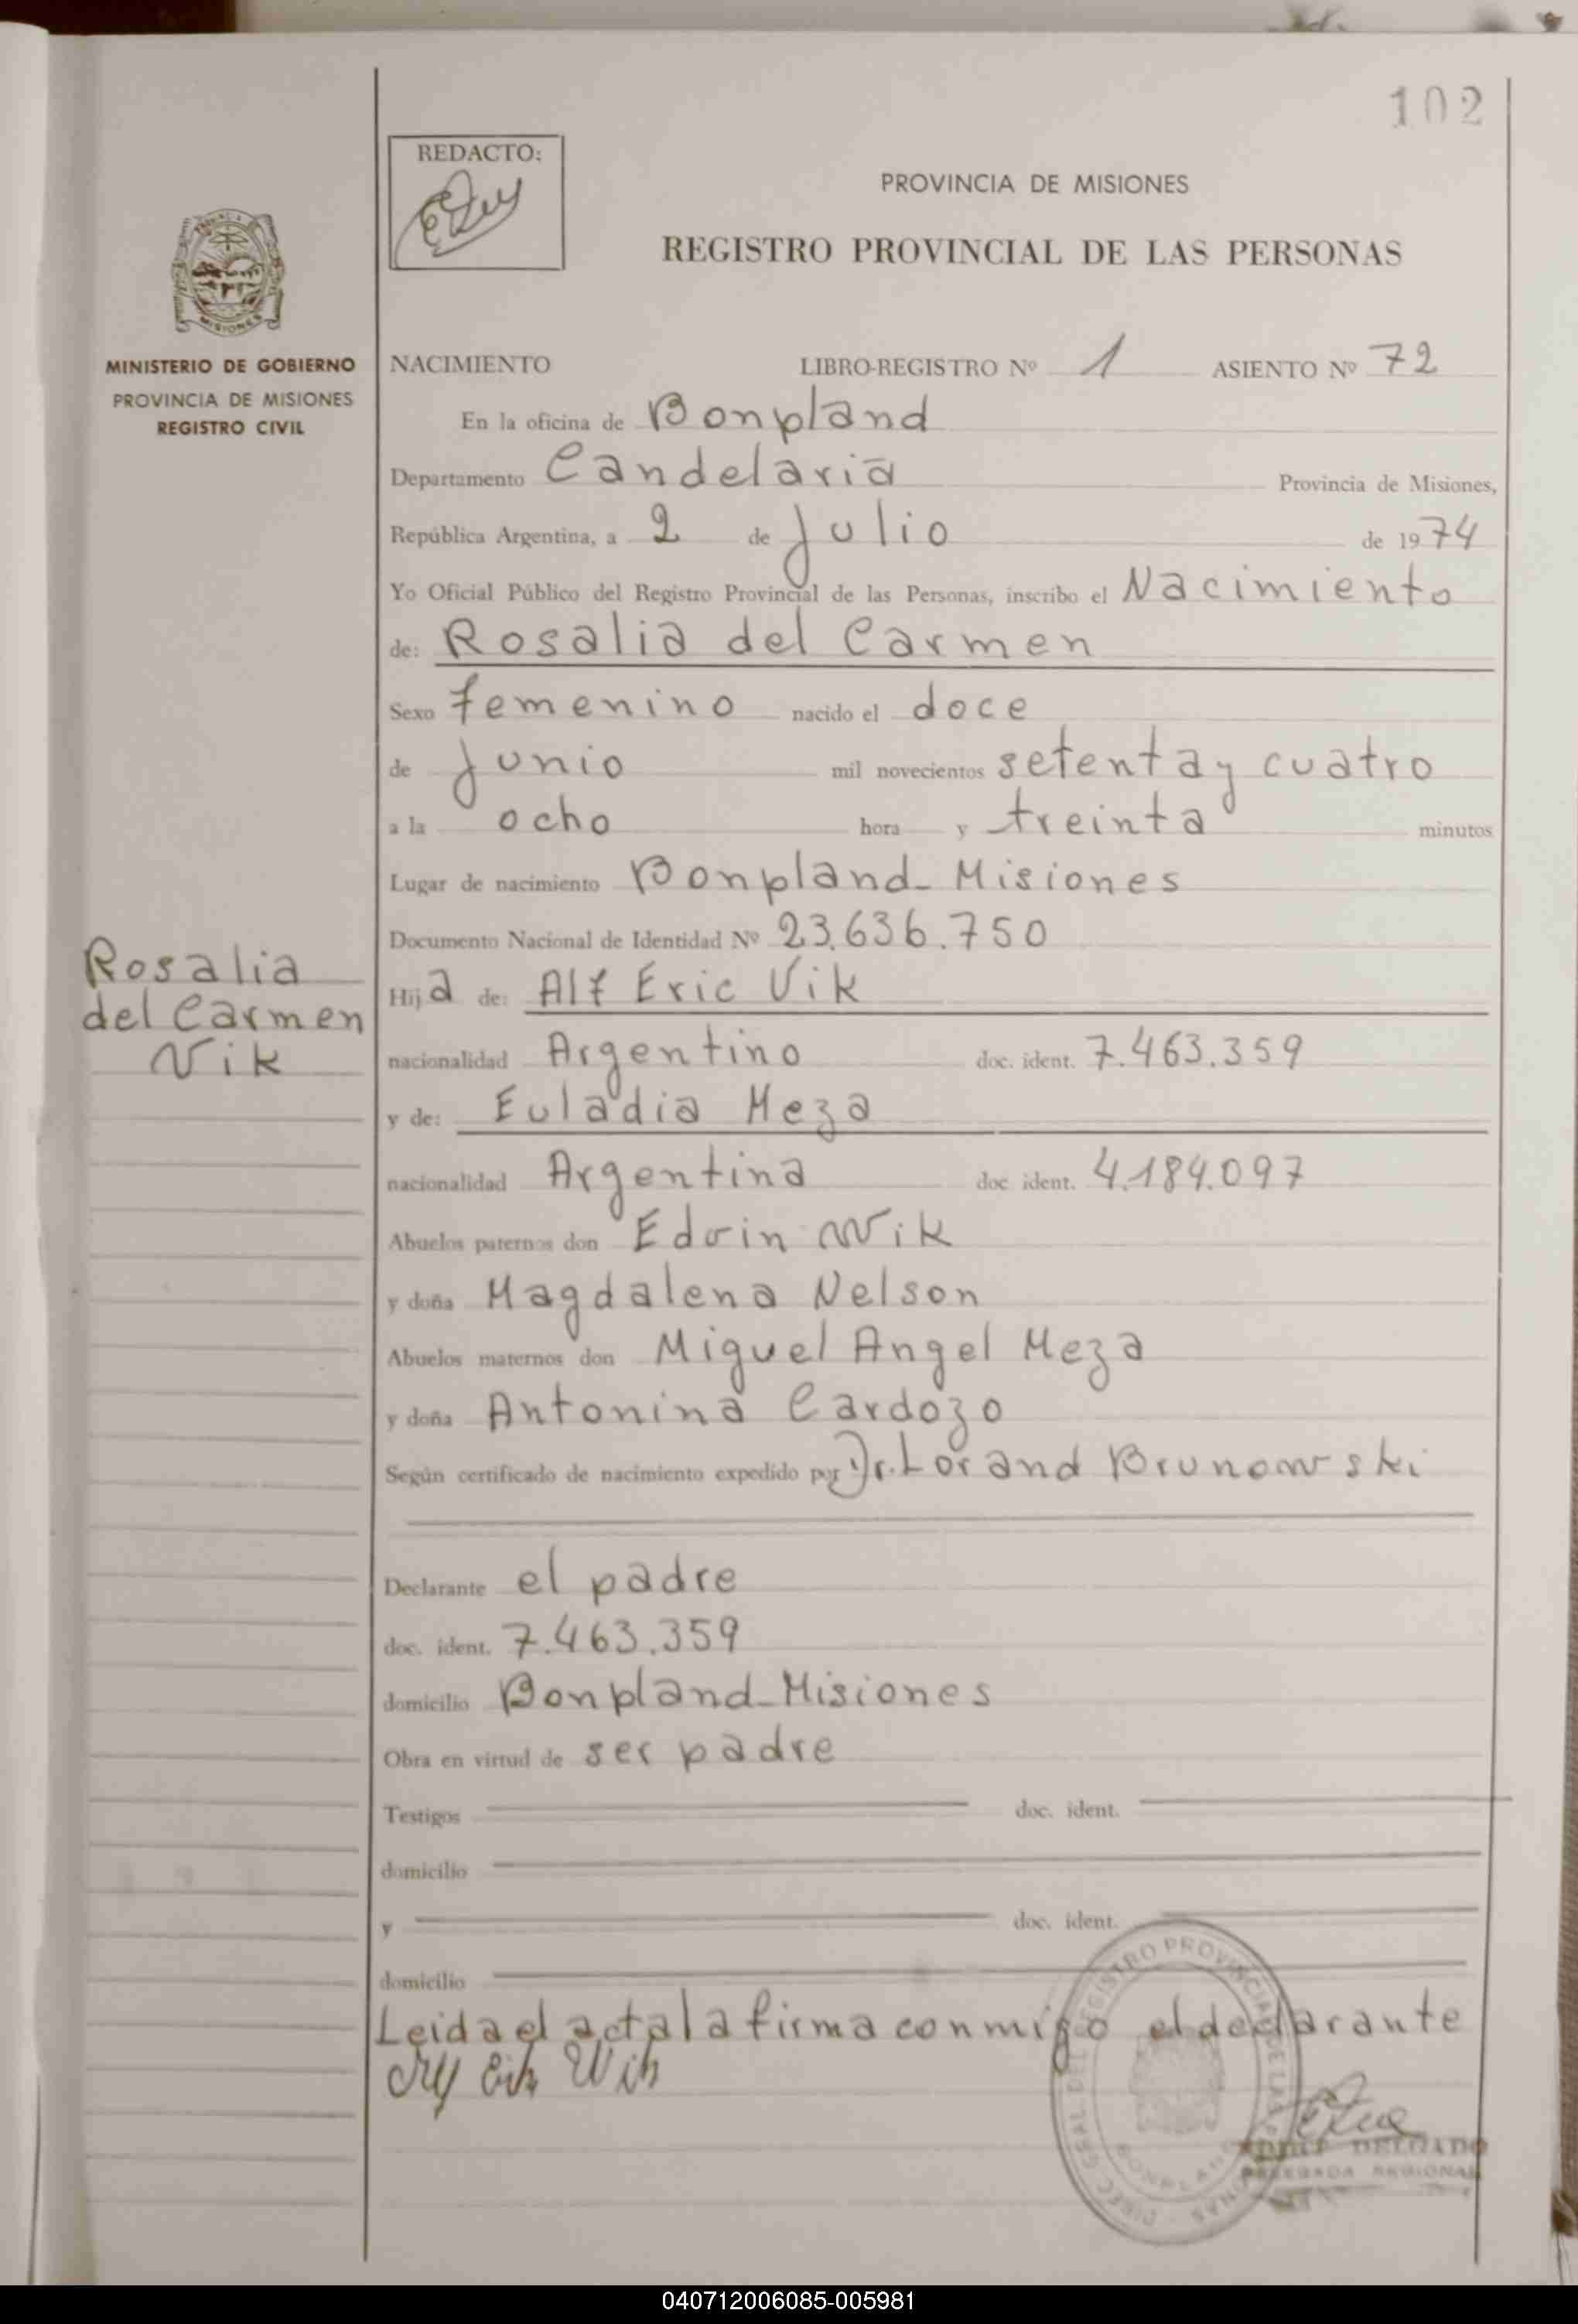 102
REDACTO:
PROVINCIA DE MISIONES
REGISTRO PROVINCIAL DE LAS PERSONAS
MISIONES
MINISTERIO DE GOBIERNO
PROVINCIA DE MISIONES
REGISTRO CIVIL
NACIMIENTO LIBRO-REGISTRO Nº 1 ASIENTO Nº 72
En la oficina de Bonpland
Departamento Candelaria Provincia de Misiones,
República Argentina, a 2 de Julio de 1974
Yo Oficial Público del Registro Provincial de las Personas, inscribo el Nacimiento
de: Rosalia del Carmen
Sexo femenino nacido el doce
de Junio mil novecientos setenta y cuatro
a la ocho hora y treinta minutos
Lugar de nacimiento Bonpland - Misiones
Documento Nacional de Identidad Nº 23.636.750
Rosalia
del Carmen
Vik
Hija de: Alf Eric Vik
nacionalidad Argentino doc. ident. 7.463.359
y de: Euladia Meza
nacionalidad Argentina doc. ident. 4.184.097
Abuelos paternos don Edvin Wik
y doña Magdalena Nelson
Abuelos maternos don Miguel Angel Meza
y doña Antonina Cardozo
Según certificado de nacimiento expedido por Dr. Lorand Brunowski
Declarante el padre
doc. ident. 7.463.359
domicilio Bonpland - Misiones
Obra en virtud de ser padre
Testigos doc. ident.
domicilio
y doc. ident.
domicilio
Leida el acta la firma conmigo el declarante
DIREC. GRAL. DEL REGISTRO PROVINCIAL DE LAS PERSONAS
BONPLAND
DELGADO
DELEGADA REGIONAL
040712006085-005981